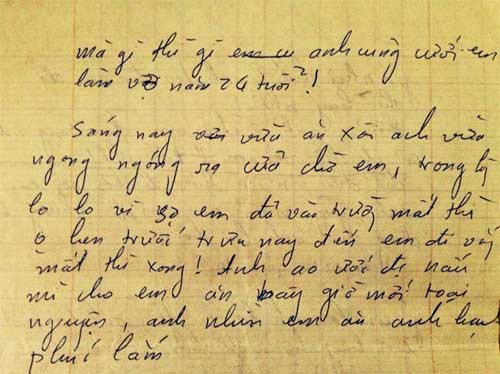 mà gì thì gì anh cũng cưới em
làm vợ năm 24 tuổi!
Sáng nay vừa ăn xôi anh vừa
ngong ngóng ra cửa chờ em, trong lòng
lo lo vì sợ em đã vào trường mất thì
trưa nay đến em đi về
mất thì xong! Anh ao ước được nấu
mì cho em ăn bây giờ mới toại
nguyện, anh nhìn em ăn anh hạnh
phúc lắm